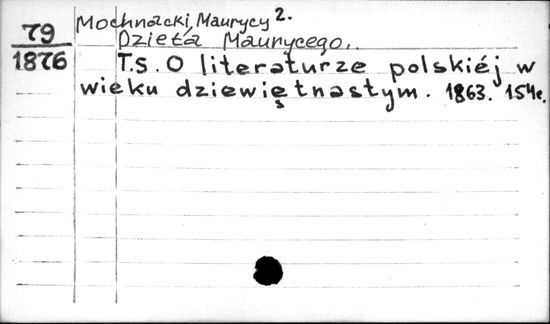 79
1876
Mochnacki, Maurycy 2.
Dzieła Maurycego..
T.5. O literaturze polskiéj w
wieku dziewiętnastym. 1863. 154c.